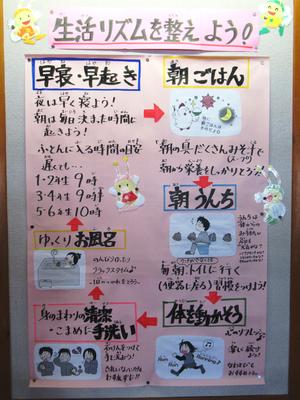 生活リズムを整えよう!
早寝・早起き
夜は早く寝よう!
朝は毎日決まった時間に
起きよう!
ふとんに入る時間の目安
遅くても…
1・2年生 9時
3・4年生 9時半
5・6年生 10時
朝ごはん
朝の具だくさんみそ汁で
(スープ)
朝から栄養をしっかりとろう!
朝うんち
毎朝、トイレに行く
(便器に座る)習慣をつけよう!
体を動かそう
心のリフレッシュ
身のまわりの清潔
・こまめに手洗い
ゆっくりお風呂
のんびりひたり
リラックスタイム♪